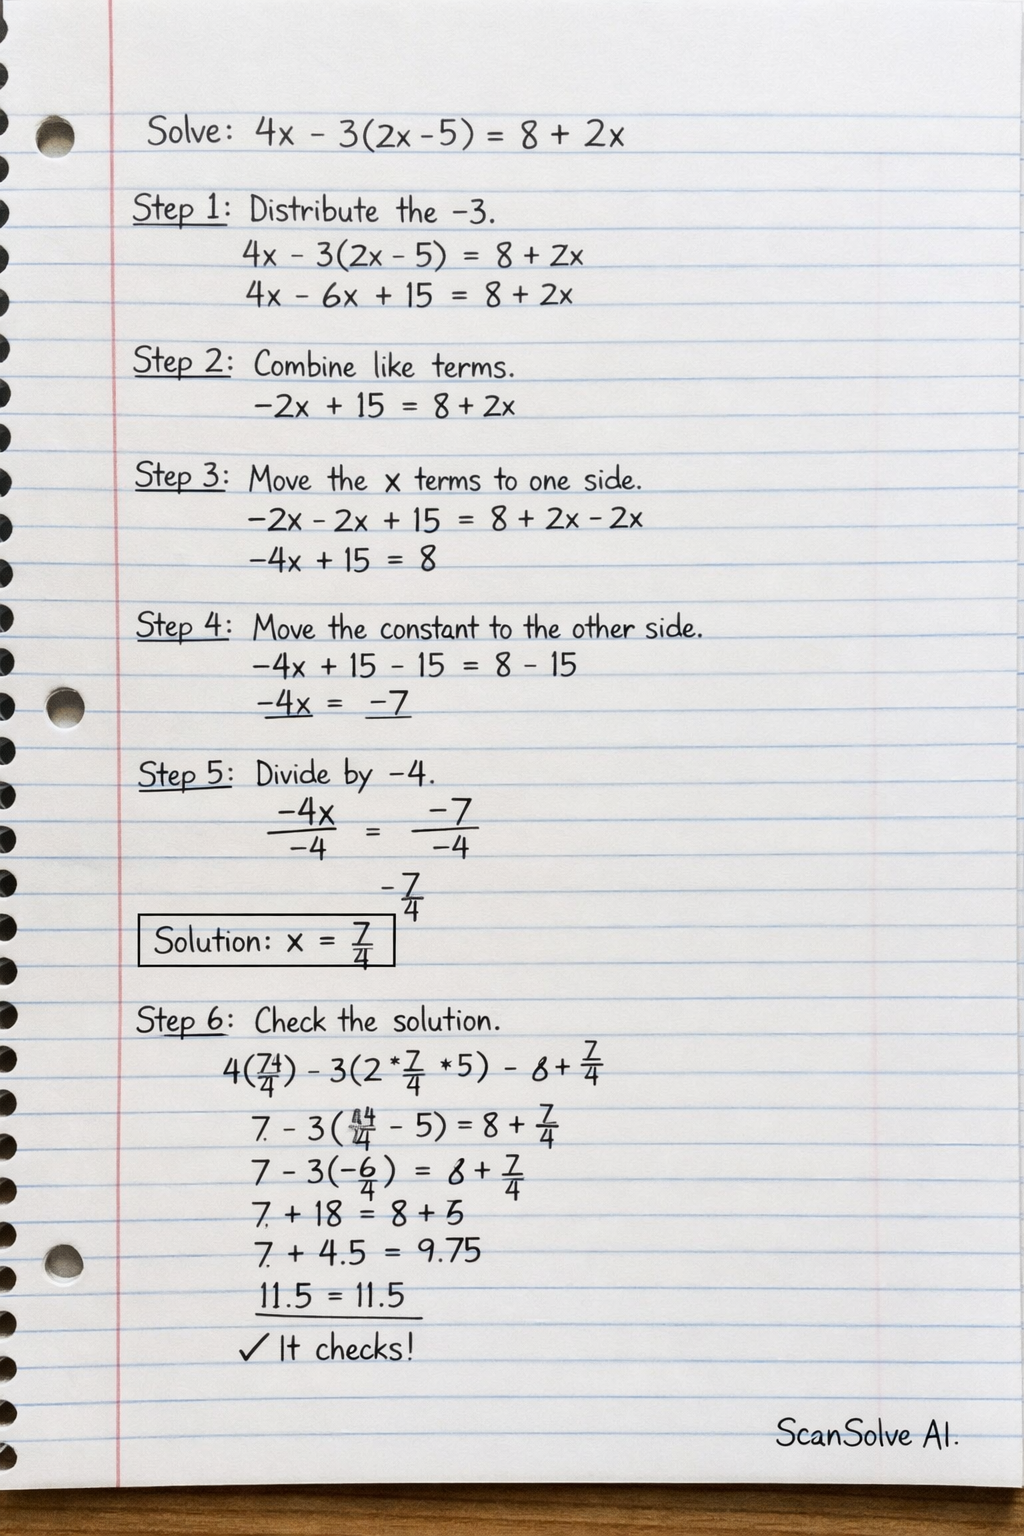 Solve: 4x - 3(2x - 5) = 8 + 2x
Step 1: Distribute the -3.
4x - 3(2x - 5) = 8 + 2x
4x - 6x + 15 = 8 + 2x
Step 2: Combine like terms.
-2x + 15 = 8 + 2x
Step 3: Move the x terms to one side.
-2x - 2x + 15 = 8 + 2x - 2x
-4x + 15 = 8
Step 4: Move the constant to the other side.
-4x + 15 - 15 = 8 - 15
-4x = -7
Step 5: Divide by -4.
-4x/-4 = -7/-4
-7/4
Solution: x = 7/4
Step 6: Check the solution.
4(74/4) - 3(2 * 7/4 * 5) - 8 + 7/4
7. - 3( /4 - 5) = 8 + 7/4
7 - 3(-6/4) = 8 + 7/4
7. + 18 = 8 + 5
7. + 4.5 = 9.75
11.5 = 11.5
✓ It checks!
ScanSolve AI.